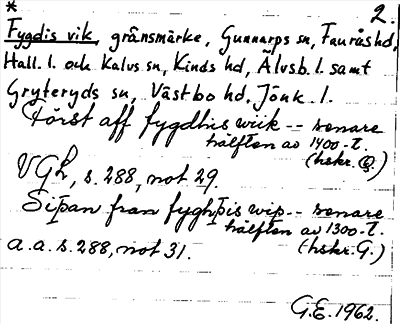 * 2.
Fygdis vik, gränsmärke, Gunnarps sn, Faurås hd,
Hall. l. och Kalvs sn, Kinds hd, Älvsb. l. samt
Gryteryds sn, Västbo hd, Jönk. l.
Först aff fygdhis wiik -- senare
hälften av 1400-t.
(hskr. Q.)
VGL, s. 288, not 29.
Siþan fran fyghþis wip -- senare
hälften av 1300-t.
a.a. s. 288, not 31. (hskr. G.)
G.E. 1962.